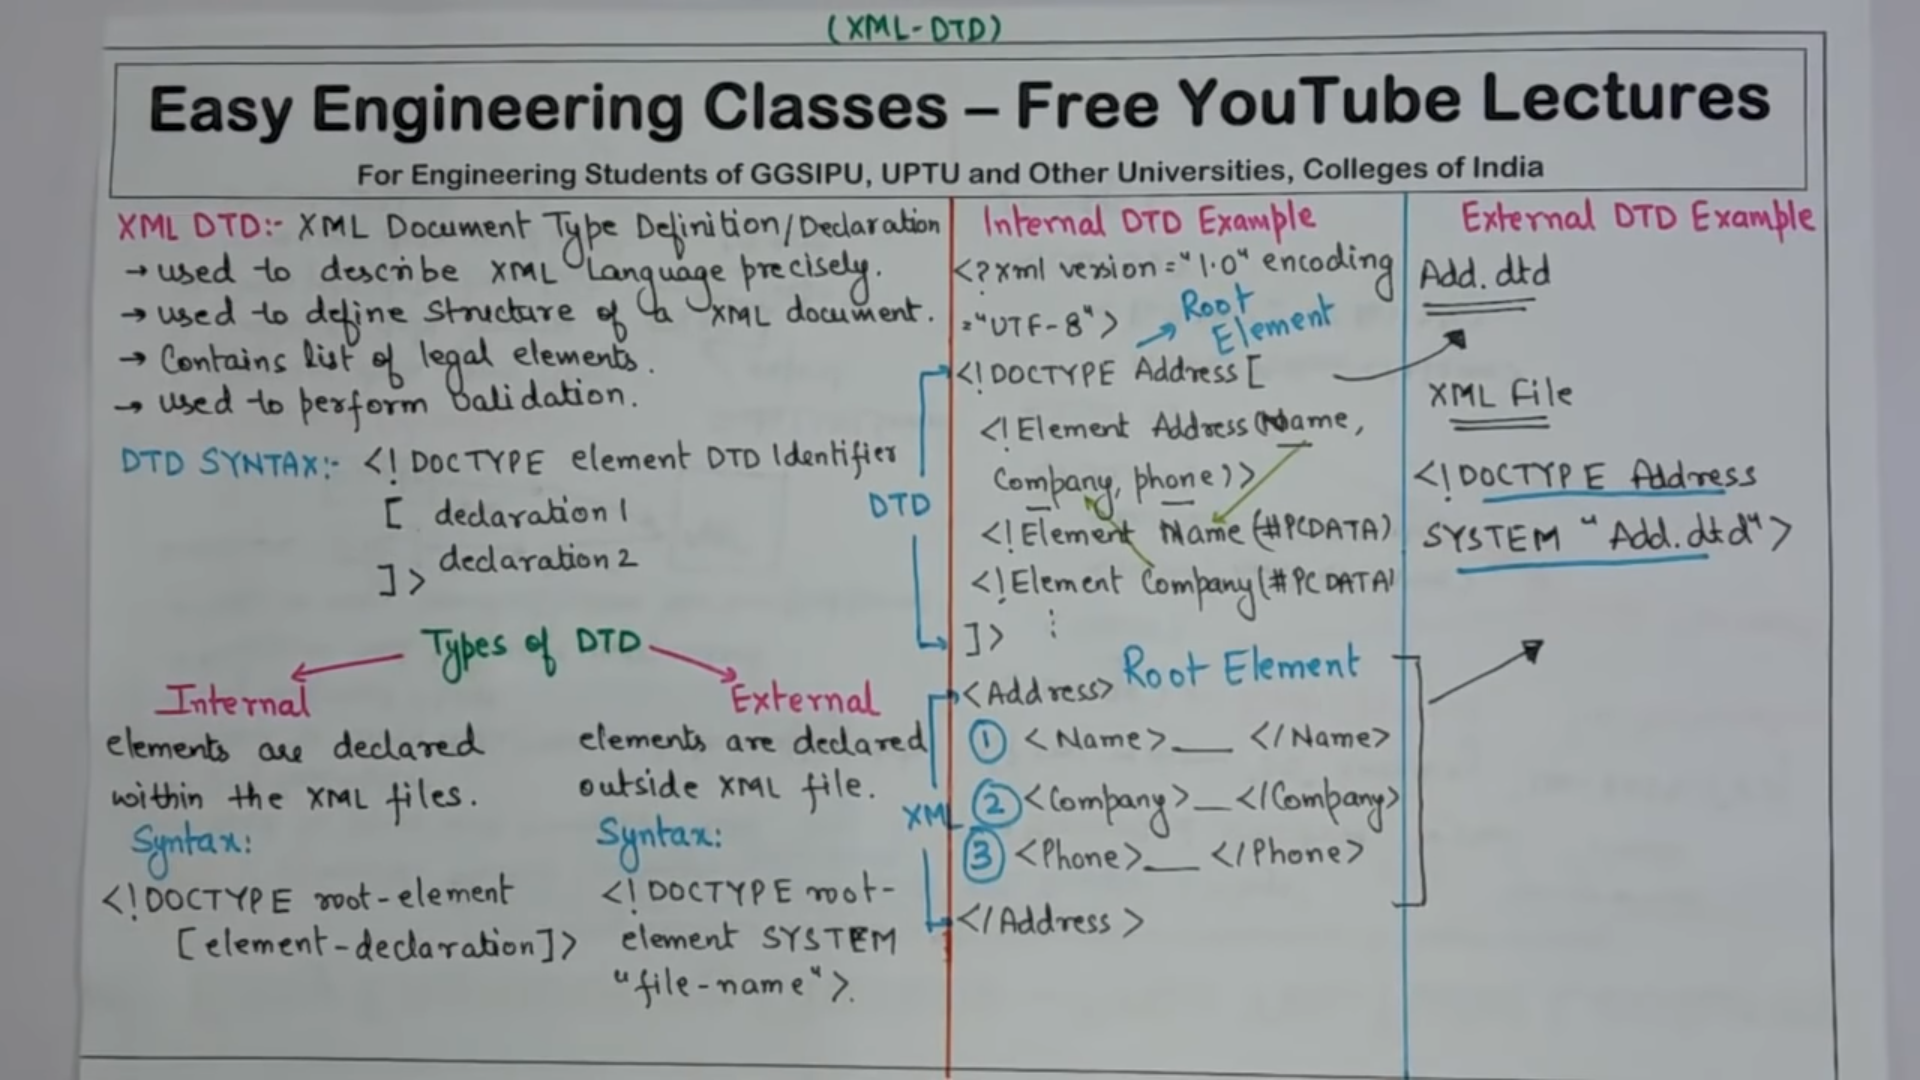 (XML-DTD)
Easy Engineering Classes – Free YouTube Lectures
For Engineering Students of GGSIPU, UPTU and Other Universities, Colleges of India
XML DTD:- XML Document Type Definition/Declaration
→ used to describe XML Language precisely.
→ used to define structure of a XML document.
→ Contains list of legal elements.
→ used to perform validation.
DTD SYNTAX:- <! DOCTYPE element DTD Identifier
[ declaration 1
declaration 2
]>
Types of DTD
Internal
elements are declared
within the XML files.
Syntax:
<!DOCTYPE root-element
[element-declaration]>
External
elements are declared
outside XML file.
Syntax:
<!DOCTYPE root-
element SYSTEM
"file-name">.
Internal DTD Example
<?xml version="1.0" encoding
="UTF-8">
Root
Element
<!DOCTYPE Address [
<!Element Address (Name,
Company, phone)>
DTD
<!Element Name (#PCDATA)
<!Element Company(#PCDATA)
]>
Root Element
<Address>
1 <Name>__ </Name>
XML
2 <Company>_</Company>
3 <Phone>__ </Phone>
</Address>
External DTD Example
Add.dtd
XML File
<!DOCTYPE Address
SYSTEM "Add.dtd">